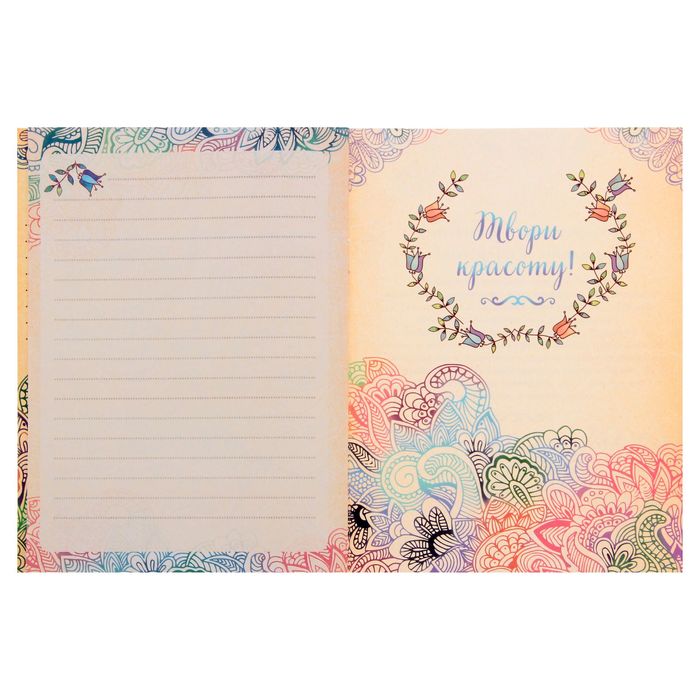 Твори
красоту!